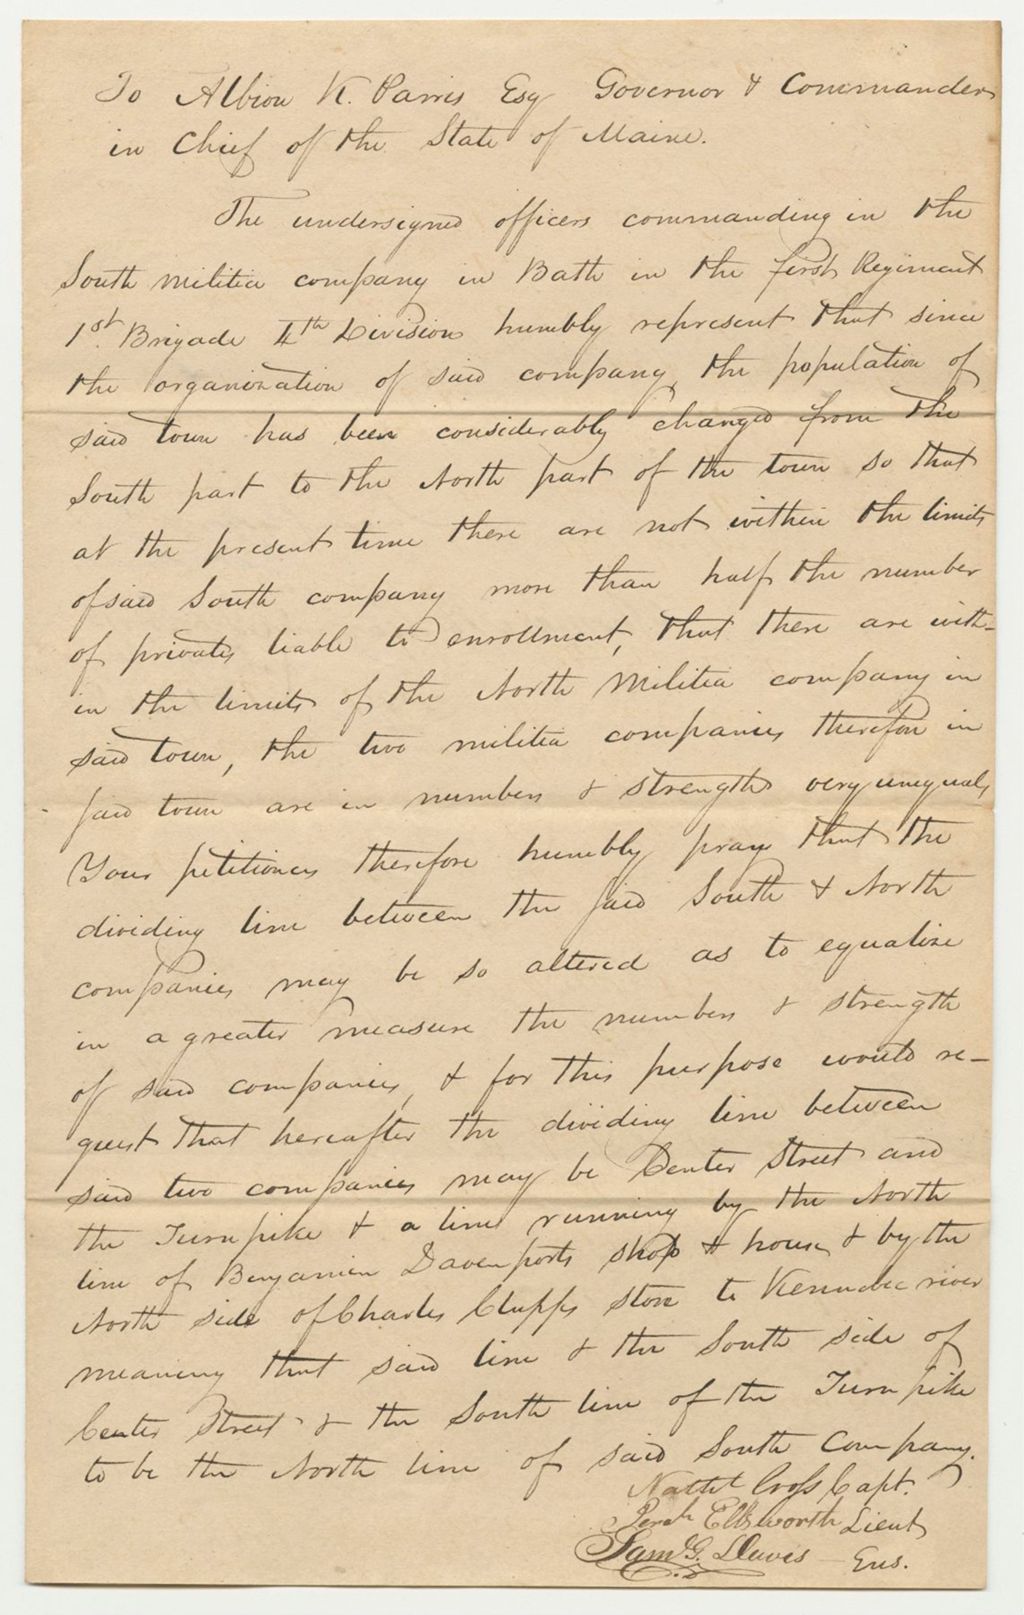 To Albion K. Parris Esq Governor & Commander
in Chief of the State of Maine.
The undersigned officers commanding in the
South militia company in Bath in the first Regiment
1st. Brigade 4th Division humbly represent that since
the organization of said company, the population of
said town has been considerably changed from the
South part to the North part of the town so that
at the present time there are not within the limits
of said South company more than half the number
of privates liable to enrollment, that there are with-
in the limits of the North Militia company in
said town, the two militia companies therefore in
said town are in numbers & strength very unequal,
Your petitioners therefore humbly pray that the
dividing line between the said South & North
companies may be so altered as to equalize
in a greater measure the numbers & strength
of said companies, & for this purpose would re-
quest that hereafter the dividing line between
said two companies may be Center Street and
the Turnpike & a line running by the North
line of Benjamin Davenports shop & house & by the
North side of Charles Clapps store to Kennebec river
meaning that said line & the South side of
Center Street & the South line of the Turnpike
to be the North line of said South Company.
Nathl Cross Capt.
Ellsworth Lieut
Saml G. Davis - Ens.